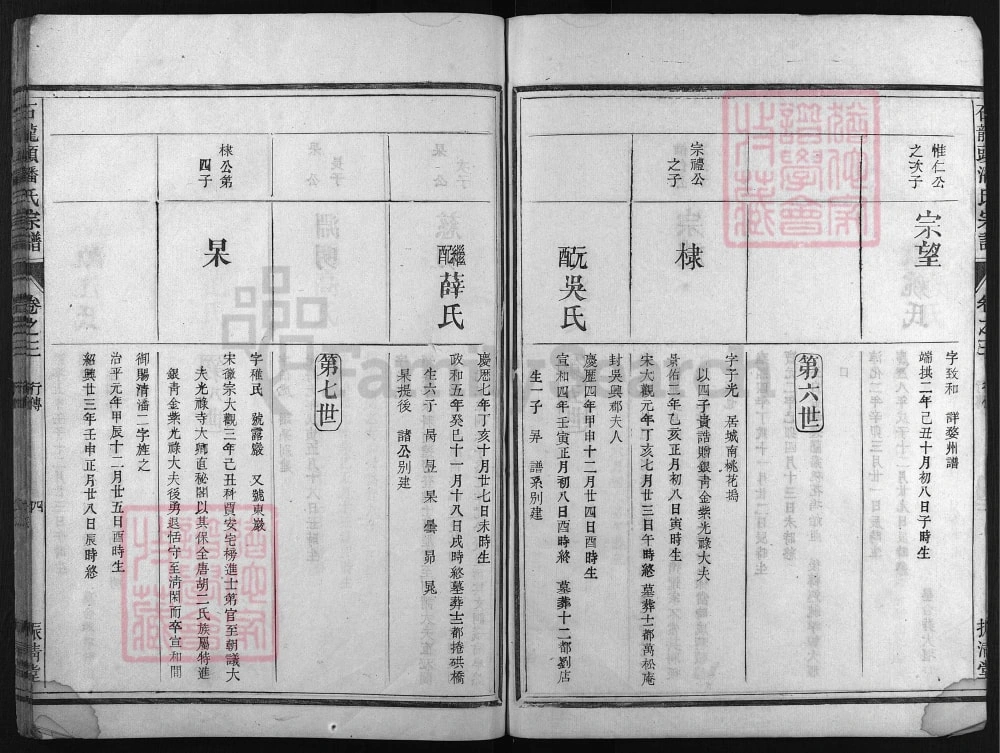 惟仁公
之次子
宗望
字致和 詳婺州譜
端拱二年己丑十月初八日子時生
第六世
宗禮公
之子
棣
字子光 居城南桃花塢
以四子貴誥贈銀青金紫光祿大夫
景佑二年乙亥正月初八日寅時生
宋大觀元年丁亥七月廿三日午時終墓葬士都萬松庵
元配
吳氏
封吳郡夫人
慶歷四年甲申十二月廿四日酉時生
宣和四年壬寅正月初八日酉時終 墓葬十二都劉店
生一子 昇 譜系別建
繼配
薛氏
慶歷七年丁亥十月廿七日未時生
政和五年癸巳十一月十八日戌時終墓葬士都捲硔橋
生六子 昺 昱 杲 曇 昴 晁
杲提後 諸公別建
第七世
棣公弟
四子
杲
字稚民 號露巖 又號東巖
宋徽宗大觀三年己丑科賈安宅榜進士第官至朝議大
夫光祿寺大卿直秘閣以其保全唐胡二氏族屬特進
銀青金紫光祿大夫後勇退恬守至清閑而卒宣和間
御賜清潘二字旌之
治平元年甲辰十二月廿五日酉時生
紹興廿三年壬申正月廿八日辰時終
石龍頭潘氏宗譜
卷之三
行傳
四
振清堂